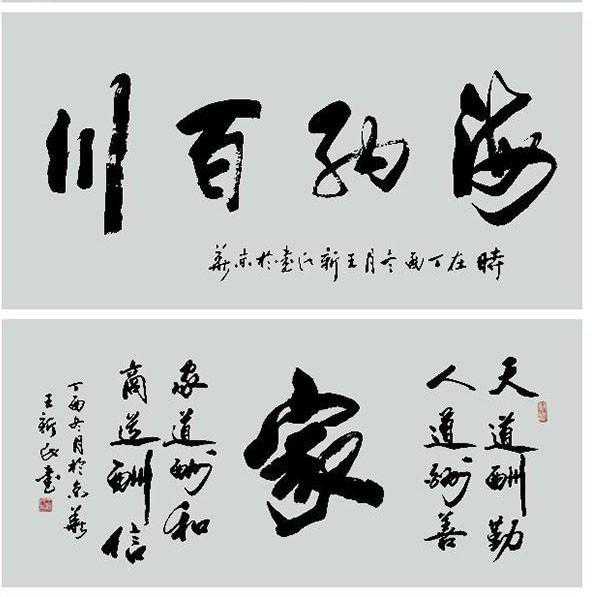 海纳百川
時在丁酉冬月王新民書於京華
天道酬勤
人道酬善
家
家道酬和
商道酬信
丁酉冬月於京華
王新民書